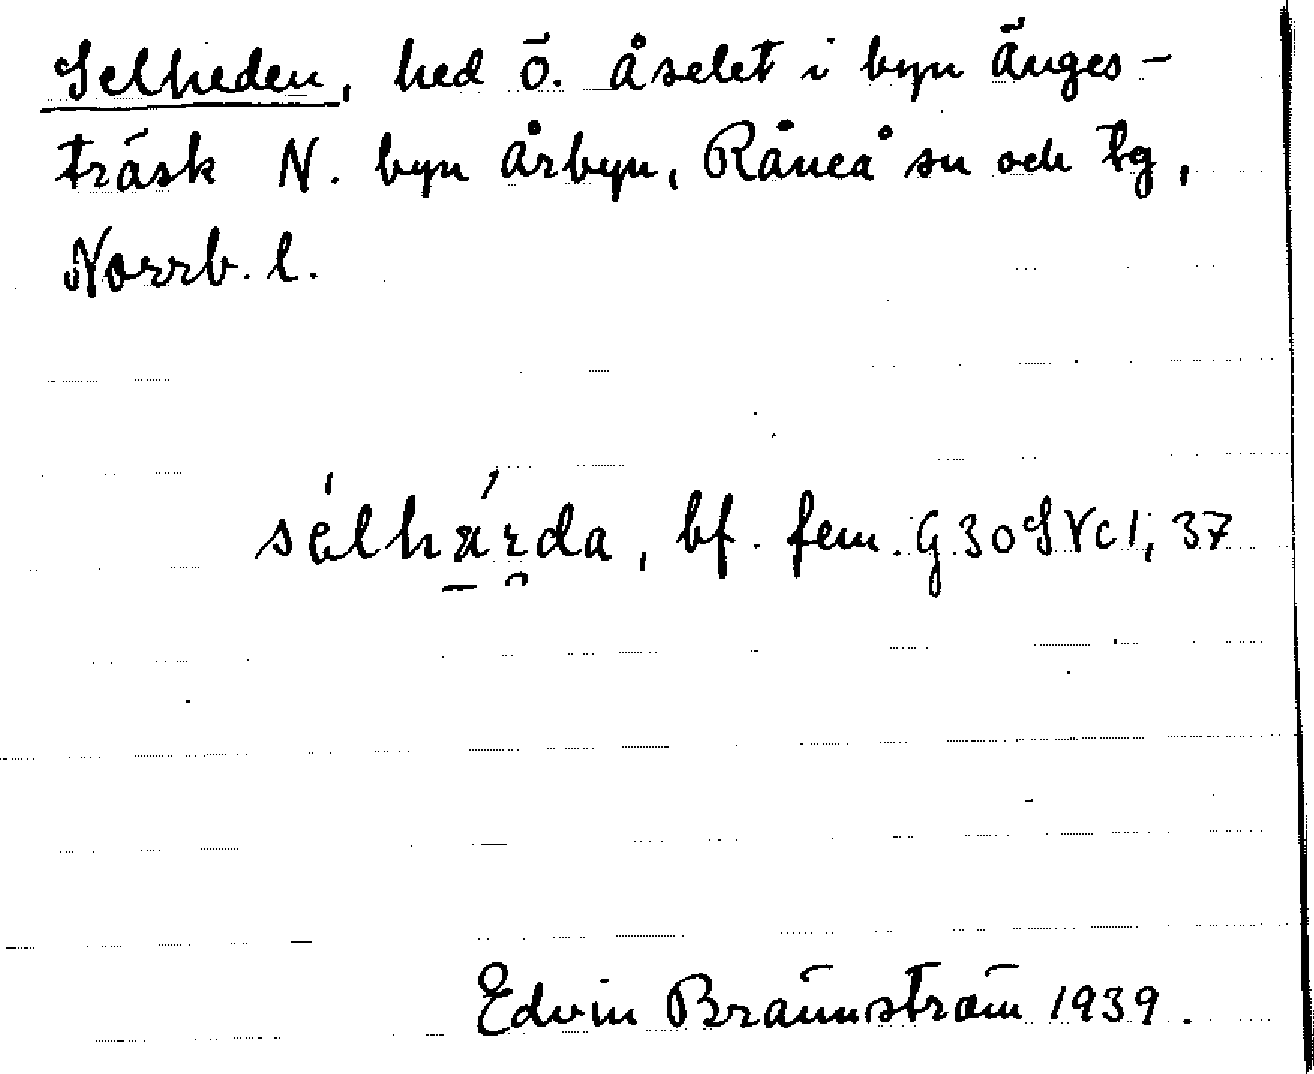 Selheden, hed ö. Åselet i byn Änges-
träsk N. byn Årbyn, Råneå sn och tg,
Norrb. l.
sélhä́rda, bf. fem. G30SVc1,37
Edvin Brännström 1939.